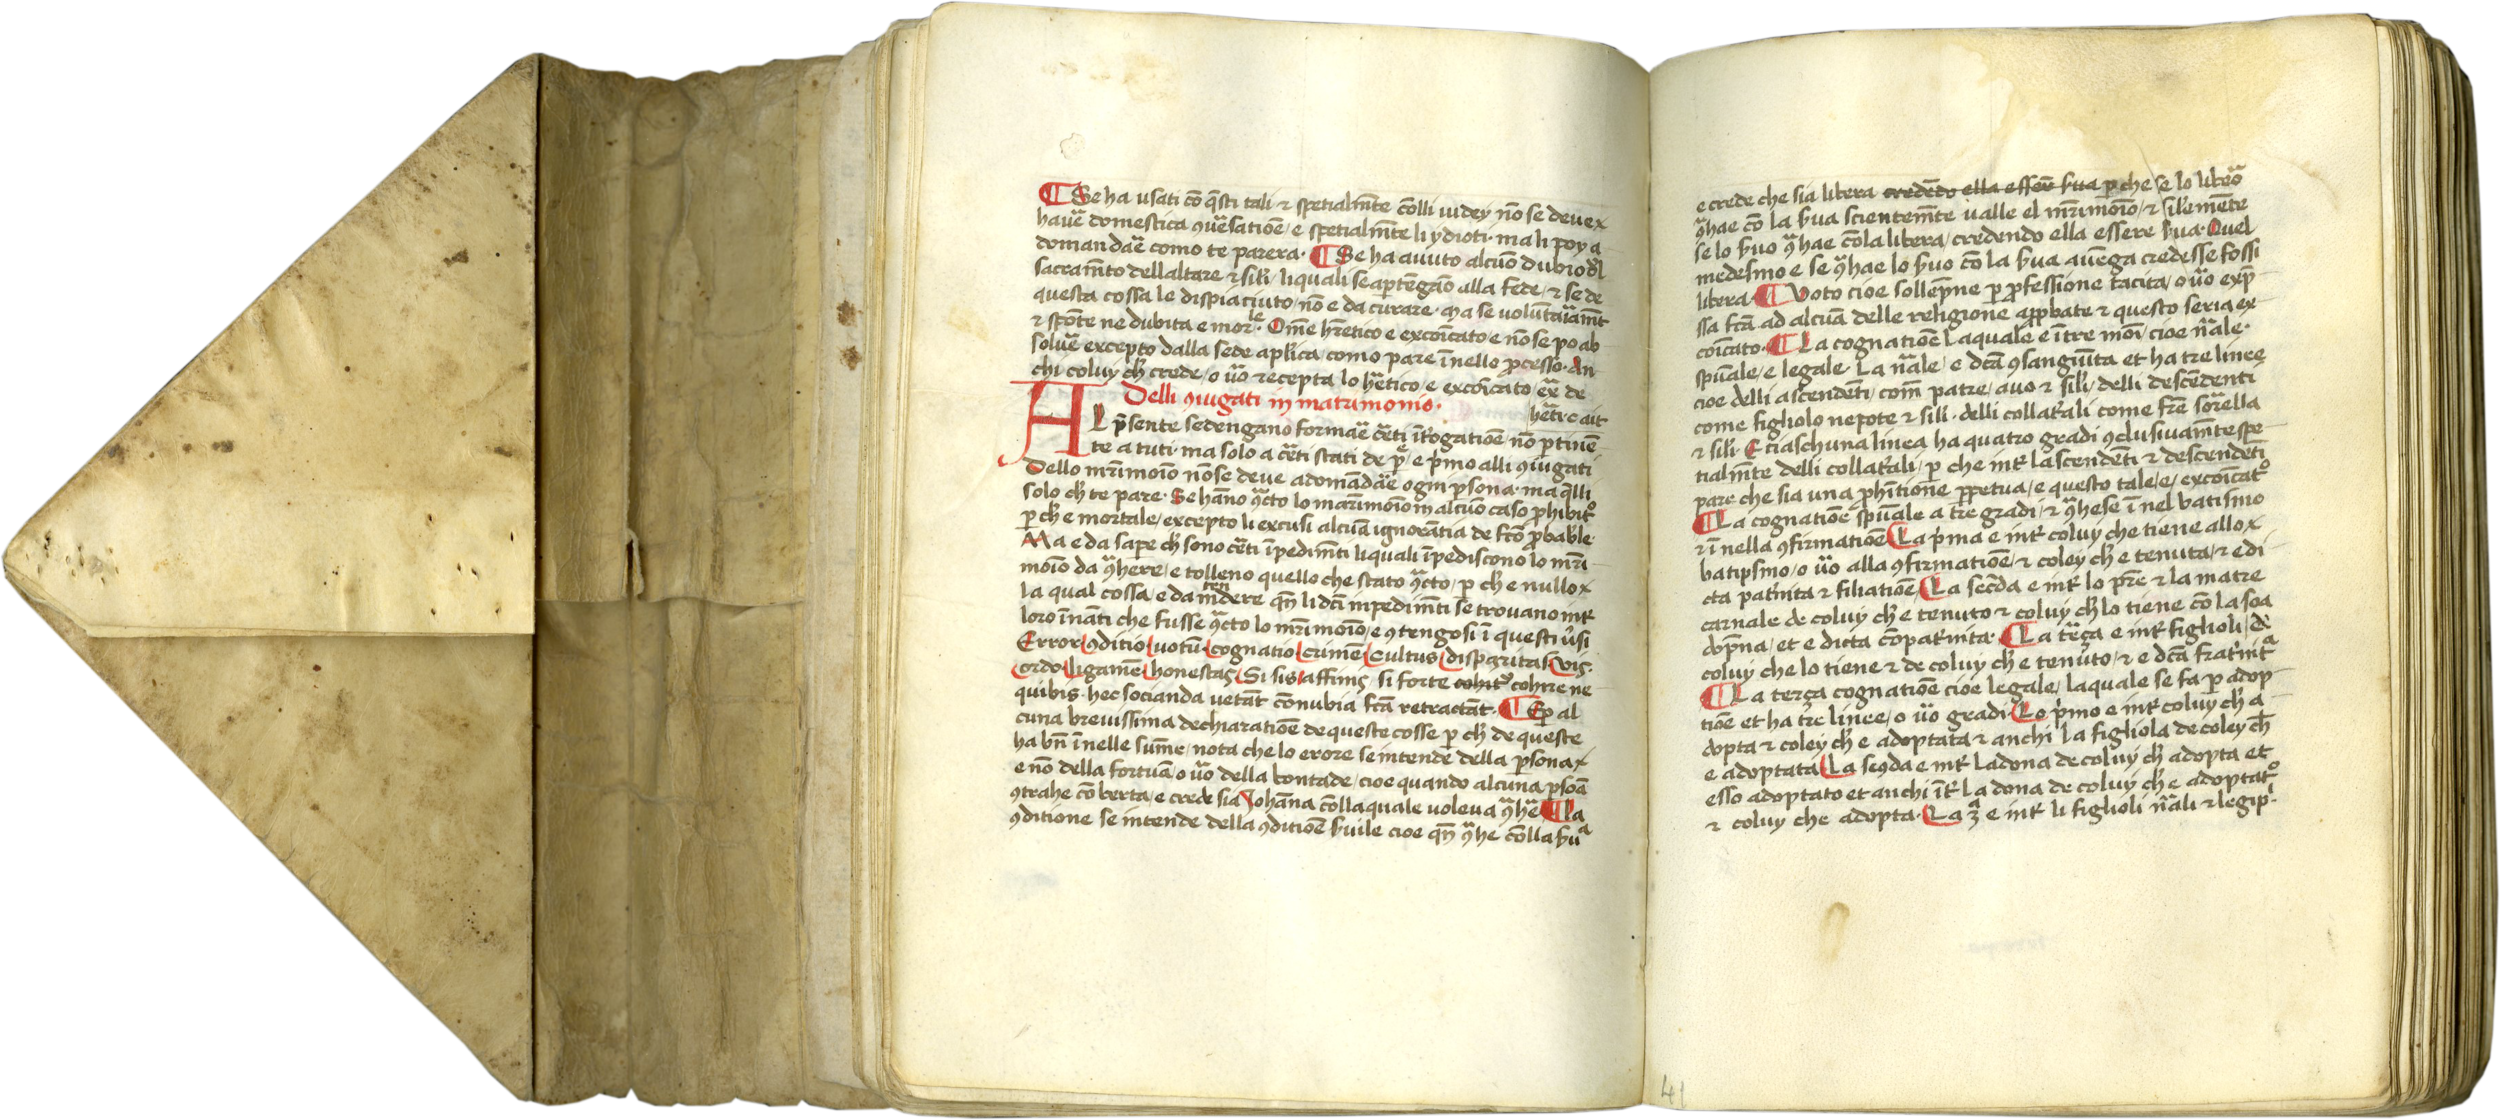 Se ha usati cō q̄sti tali ⁊ spetialm̄te cōlli iudey nō se deue x
hauē domestica ꝯuēsatiōe / e spetialm̄te li ydioti · ma li poy a
domandaē como te parera · ¶ Se ha auuto alcūo dubio dl̄
sacram̄to dellaltare ⁊ sil̄i / li quali se aptēgāo alla fede / ⁊ se de
questa cossa le dispiaciuto / nō e da curare · ma se volūtaiam̄t
⁊ spōte ne dubita e mor.le · Om̄e hr̄etico e excōicato / e nō se po ab
soluē excepto dalla sede aplica / como pare ī nello ꝓcesso · An
chi coluy ch̄ crede / o ūo recepta lo hētico / e excōicato / ex̄ de
hēti · c ait
Delli ꝯiugati in matrimonio ·
AL p̄sente se dengano formaē cēti īt̄rogatiōe nō ptinē
te a tuti · ma solo a cēti stati de p̄e / e pͥmo alli ꝯiugati
Dello mr̄imoīo nō se deue adomādāe ogni ꝑsona · ma q̄lli
solo ch̄ te pare · Se hāno ꝯᵃcto lo mar̄imōio in alcūo caso ꝓhibitͦ
ꝑ ch̄ e mortale / excepto li excusi alcūa ignorātia de fcō ꝓbabl̄e ·
Ma e da sape ch̄ sono cēti īpedim̄ti li quali īpediscono lo mr̄i
mōio da ꝯᵃhere / e tolleno quello che stato ꝯᵃcto / ꝑ ch̄ e nullo x
la qual cossa / e da intendere qn̄ li dcī inpedim̄ti se trouano int̄
loro īnāti che fusse ꝯᵃcto lo mr̄imoīo / e ꝯtengosi ī questi ūsi
Error ꝯditio uotū cognatio crimē Cultus disparitas vis ·
ordo ligamē honestas Si sis affinis / si forte cohitͦ cohire ne
quibis · hec socianda vetāt cōnubia fcā retractāt · ¶ Ep̄ al
cuna breuissima dechiaratiōe de queste cosse ꝑ ch̄ de queste
ha bn̄ ī nelle sum̄e / nota che lo erore se intende della ꝑsona x
e nō della fortūa / o ūo della bontade / cioe quando alcuna ꝑsōa
ꝯtrahe cō berta / e crede sia Iohāna cōlla quale uoleua ꝯᵃhē ¶ La
ꝯditione se intende della ꝯditiōe s̄uile cioe qn̄ ꝯᵃhe cōlla s̄uᵃ
e crede che sia libera credēdo ella esser̄ s̄ua ꝑ che se lo liberͦo
ꝯᵃhae cō la s̄ua scientem̄te ualle el mr̄imoīo / ⁊ sil̄emēte
se lo s̄uo ꝯᵃhae cōla libera / credendo ella essere s̄ua · Quel
medesimo e se ꝯᵃhae lo s̄uo cō la s̄ua auēga credesse fossi
libera ¶ Voto cioe sollēpne ꝑ ꝓfessione tacita / o ūo exp̄
ssa fcā ad alcūa delle religione approbate ⁊ questo seria ex
coīcato · ¶ La cognatiōe Laquale e ī tre mōi / cioe nᵃale ·
spūale / e legale · La nᵃale / e dcā ꝯsanguīta et ha tre linee
cioe delli ascendēti / com̄ patre / auo ⁊ sil̄i / delli descēdenti
come figliolo nepote ⁊ sil̄i · delli collat̄ali come fr̄e sorella
⁊ sil̄i · E ciaschuna linea ha quatro gradi ꝯclusiuam̄te spe
tialm̄te delli collat̄ali / ꝑ che int̄ lascendēti ⁊ descendēti
pare che sia una ꝓhītione ppetua / e questo tale / e / excōicatͦ
¶ La cognatiōe spūale a tre gradi / ⁊ ꝯᵃhese ī nel batismo
⁊ ī nella ꝯfirmatiōe La pͥma e int̄ coluy che tiene allo x
batipsmo / o ūo alla ꝯfirmatiōe / ⁊ coley ch̄ e tenuta / ⁊ e di
cta pat̄nita ⁊ filiatiōe La secda e int̄ lo pr̄e ⁊ la matre
carnale de coluy ch̄ e tenuto ⁊ coluy ch̄ lo tiene cō la soa
dop̄na / et e dicta cōpat̄nita · La tēça e int̄ figlioli / de
coluy che lo tiene ⁊ de coluy ch̄ e tenuto / ⁊ e dcā frat̄nitᵃ
¶ La terça cognatiōe cioe legale / laquale se fa ꝑ adop
tiōe et ha tre linee / o ūo gradi Lo pͥmo e int̄ coluy ch̄ a
dopta ⁊ coley ch̄ e adoptata ⁊ anchi la figliola de coley ch̄
e adoptata La seꝯda e int̄ ladona de coluy ch̄ adopta et
esso adoptato et anchi īt̄ la dona de coluy ch̄ e adoptatͦ
⁊ coluy che adopta · La 3ᵃ e int̄ li figlioli nᵃali ⁊ legipͥ ·
41